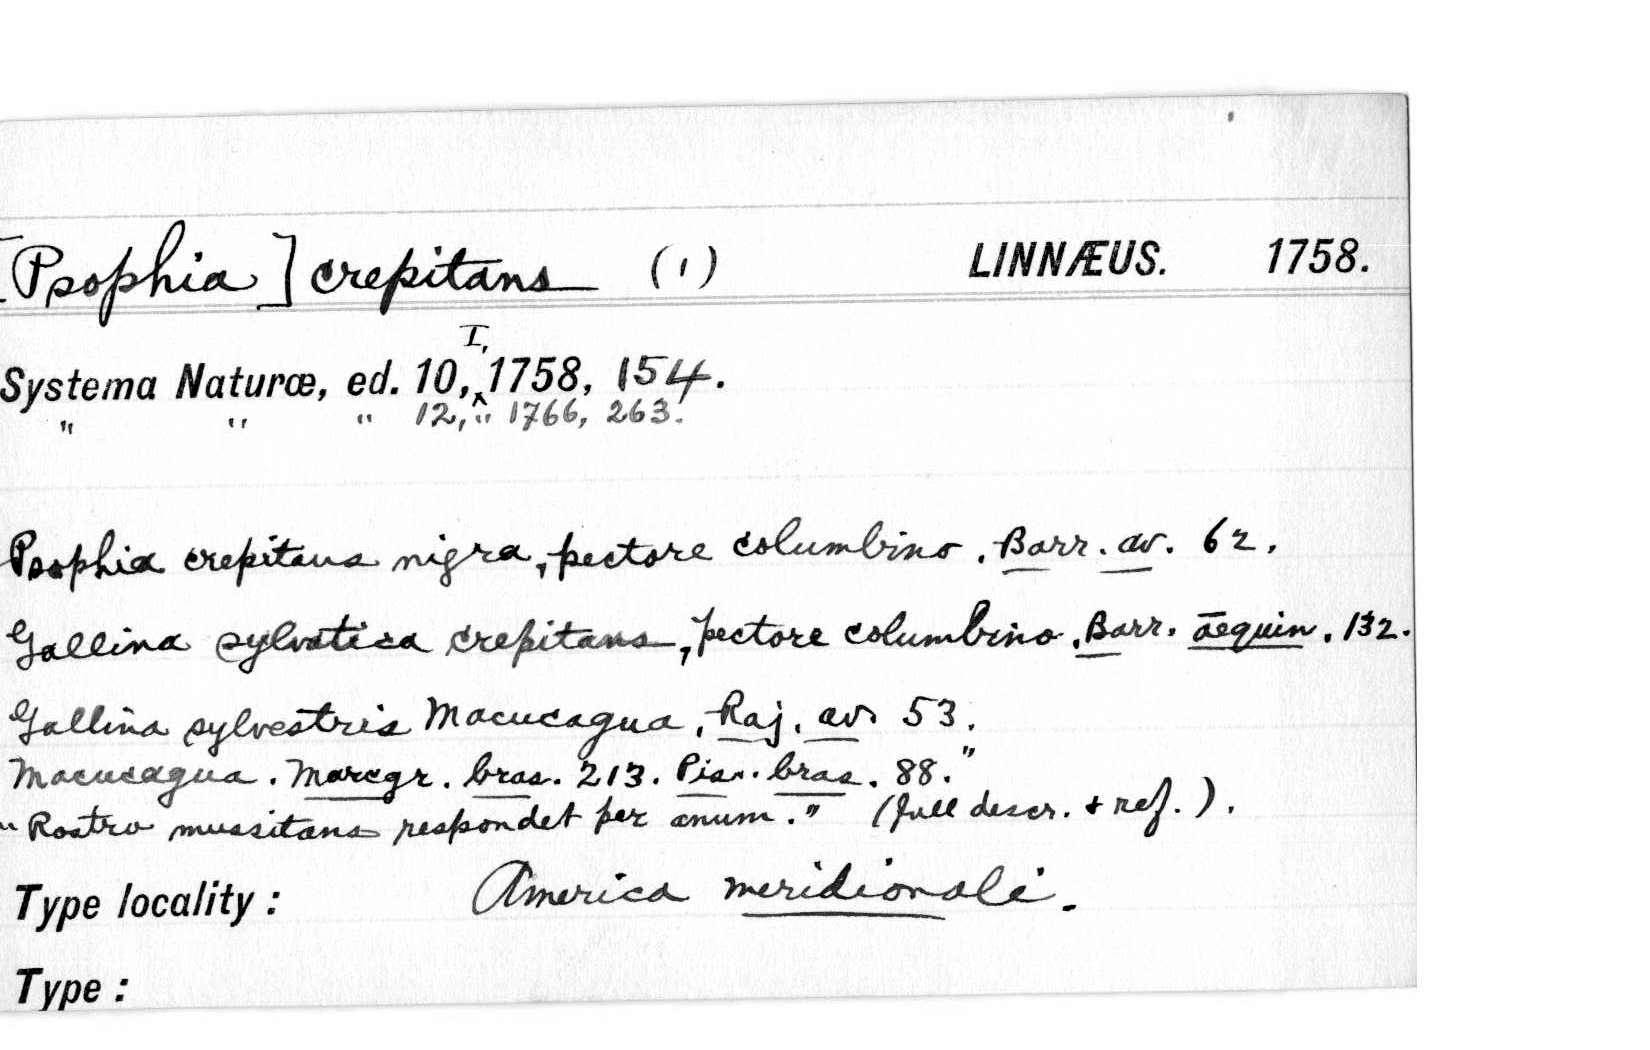 [Psophia] crepitans (1) LINNÆUS. 1758.
I,
Systema Naturæ, ed. 10, ^ 1758, 154.
" " " 12, " 1766, 263.
Psophia crepitans nigra, pectore columbino. Barr. av. 62.
Gallina sylvatica crepitans, pectore columbino. Barr. æquin. 132.
Gallina sylvestris Macucagua. Raj. av. 53.
Macucagua. Marcgr. bras. 213. Pis. bras. 88."
"Rostro mussitans respondet per anum." (full descr. & ref.).
Type locality: America meridionali.
Type: